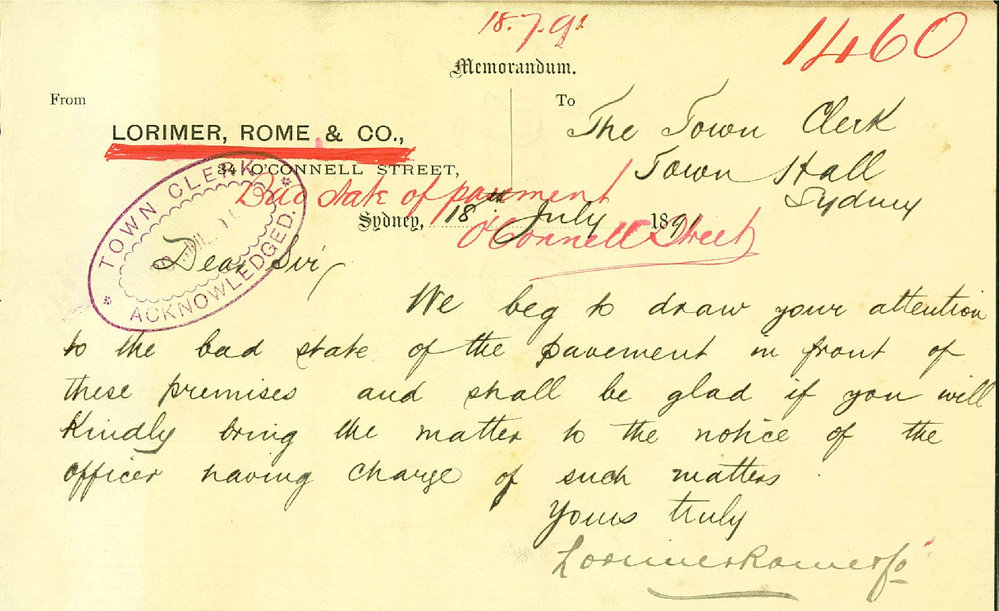 18.7.91
1460
Memorandum.
From
To
LORIMER, ROME & CO.,
34 O'CONNELL STREET,
The Town Clerk
Town Hall
Sydney
Bad state of pavement
O'Connell Street
Sydney, 18 July 1891
TOWN CLERK
ACKNOWLEDGED.
Dear Sir,
We beg to draw your attention
to the bad state of the pavement in front of
these premises and shall be glad if you will
Kindly bring the matter to the notice of the
officer having charge of such matters
Yours truly
Lorimer Rome & Co